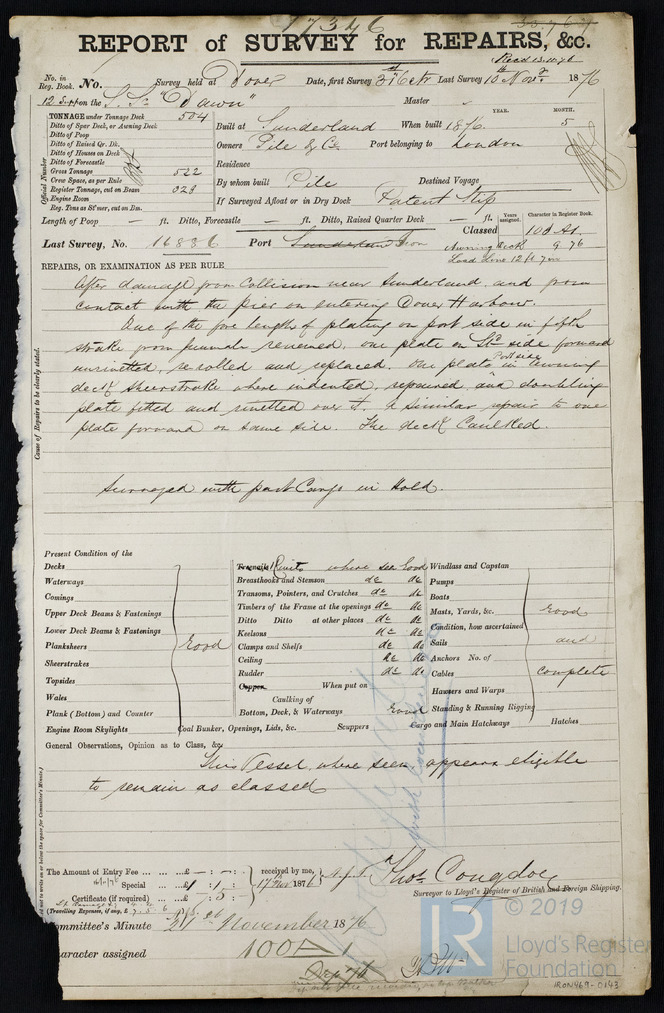 17346
REPORT of SURVEY for REPAIRS, &c.
Recd 13.11.76
No. in Reg. Book. No. Survey held at Dover Date, first Survey 31st Octr Last Survey 10th Novr 1876
on the S.S. "Dawn" Master
TONNAGE under Tonnage Deck 504
Ditto of Spar Deck, or Awning Deck
Ditto of Poop
Ditto of Raised Qr. Dk.
Ditto of Houses on Deck
Ditto of Forecastle
Gross Tonnage 522
Crew Space, as per Rule
Register Tonnage, cut on Beam
Engine Room
Reg. Tons as St'mer, cut on Bm.
Official Number
YEAR. MONTH.
Built at Sunderland When built 1876. 5
Owners Pile & Co Port belonging to London
Residence
By whom built Pile Destined Voyage
If Surveyed Afloat or in Dry Dock Patent Slip
Length of Poop — ft. Ditto, Forecastle — ft. Ditto, Raised Quarter Deck — ft.
Years assigned. Character in Register Book.
Classed 100 A1.
Last Survey, No. 16886 Port Sunderland Iron
Awning Deck 9 76
Load Line 12 ft 7 in
REPAIRS, OR EXAMINATION AS PER RULE
After damage from Collision near Sunderland and from
contact with the pier on entering Dover Harbour.
One of the fore lengths of plating on port side in fifth
strake from gunwale renewed, one plate on Std side forward
unrivetted, re-rolled and replaced. One plate Port side in awning
deck sheerstrake where indented, repaired, and doubling
plate fitted and rivetted over it. A similar repair to one
plate forward on same side. The deck Caulked.
Surveyed with part Cargo in Hold.
Cause of Repairs to be clearly stated.
Present Condition of the
Decks
Waterways
Comings
Upper Deck Beams & Fastenings
Lower Deck Beams & Fastenings
Planksheers
Sheerstrakes
Topsides
Wales
Plank (Bottom) and Counter
Good
Engine Room Skylights
Treenails Rivets where seen Good
Breasthooks and Stemson do do
Transoms, Pointers, and Crutches do do
Timbers of the Frame at the openings do do
Ditto Ditto at other places do do
Keelsons do do
Clamps and Shelfs do do
Ceiling do do
Rudder do do
Copper When put on
Caulking of
Bottom, Deck, & Waterways Good
Coal Bunker, Openings, Lids, &c. Scuppers Cargo and Main Hatchways Hatches
Windlass and Capstan
Pumps
Boats
Masts, Yards, &c.
Condition, how ascertained
Sails
Anchors No. of
Cables
Hawsers and Warps
Standing & Running Rigging
Good
and
complete
General Observations, Opinion as to Class, &c.
This Vessel, where seen, appears eligible
to remain as classed
The Amount of Entry Fee ... ... ...£ — : — :
Special ... ...£ 1 : 1 :
Certificate (if required) ... ... : 5 :
received by me,
17 Nov 1876
(Travelling Expenses, if any, £
Thos Congdon
Surveyor to Lloyd's Register of British and Foreign Shipping.
Committee's Minute 21st November 1876
Character assigned 100 A 1
© 2019
LR
Lloyd's Register
Foundation
IRON469-0143